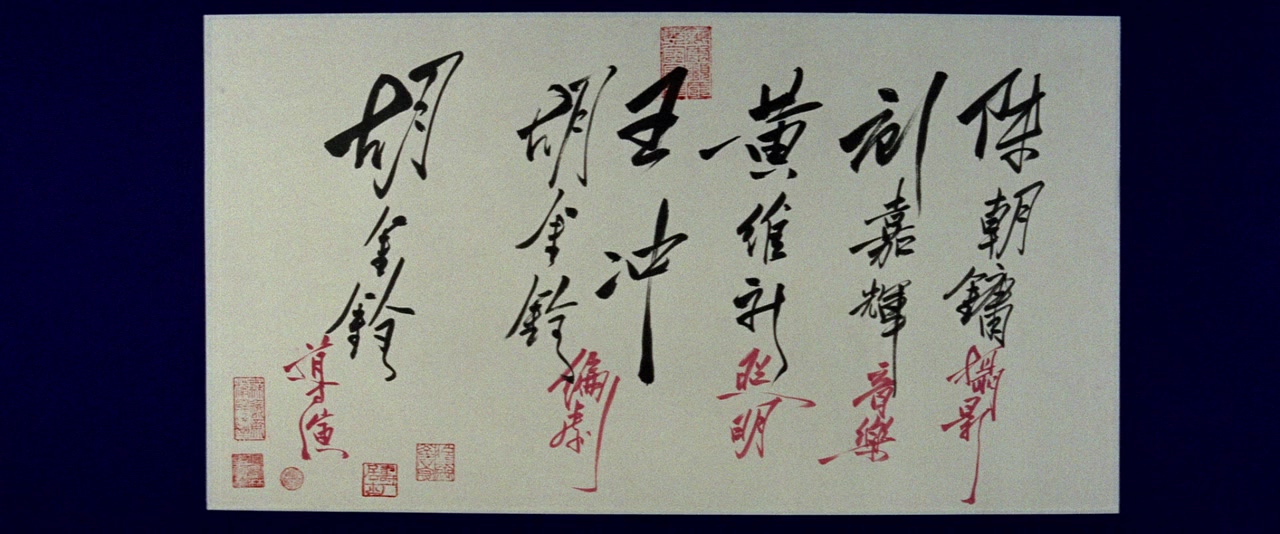 傑朝鏞攝影
劉嘉輝音樂
黃維新照明
王冲
胡金銓編劇
胡金銓導演